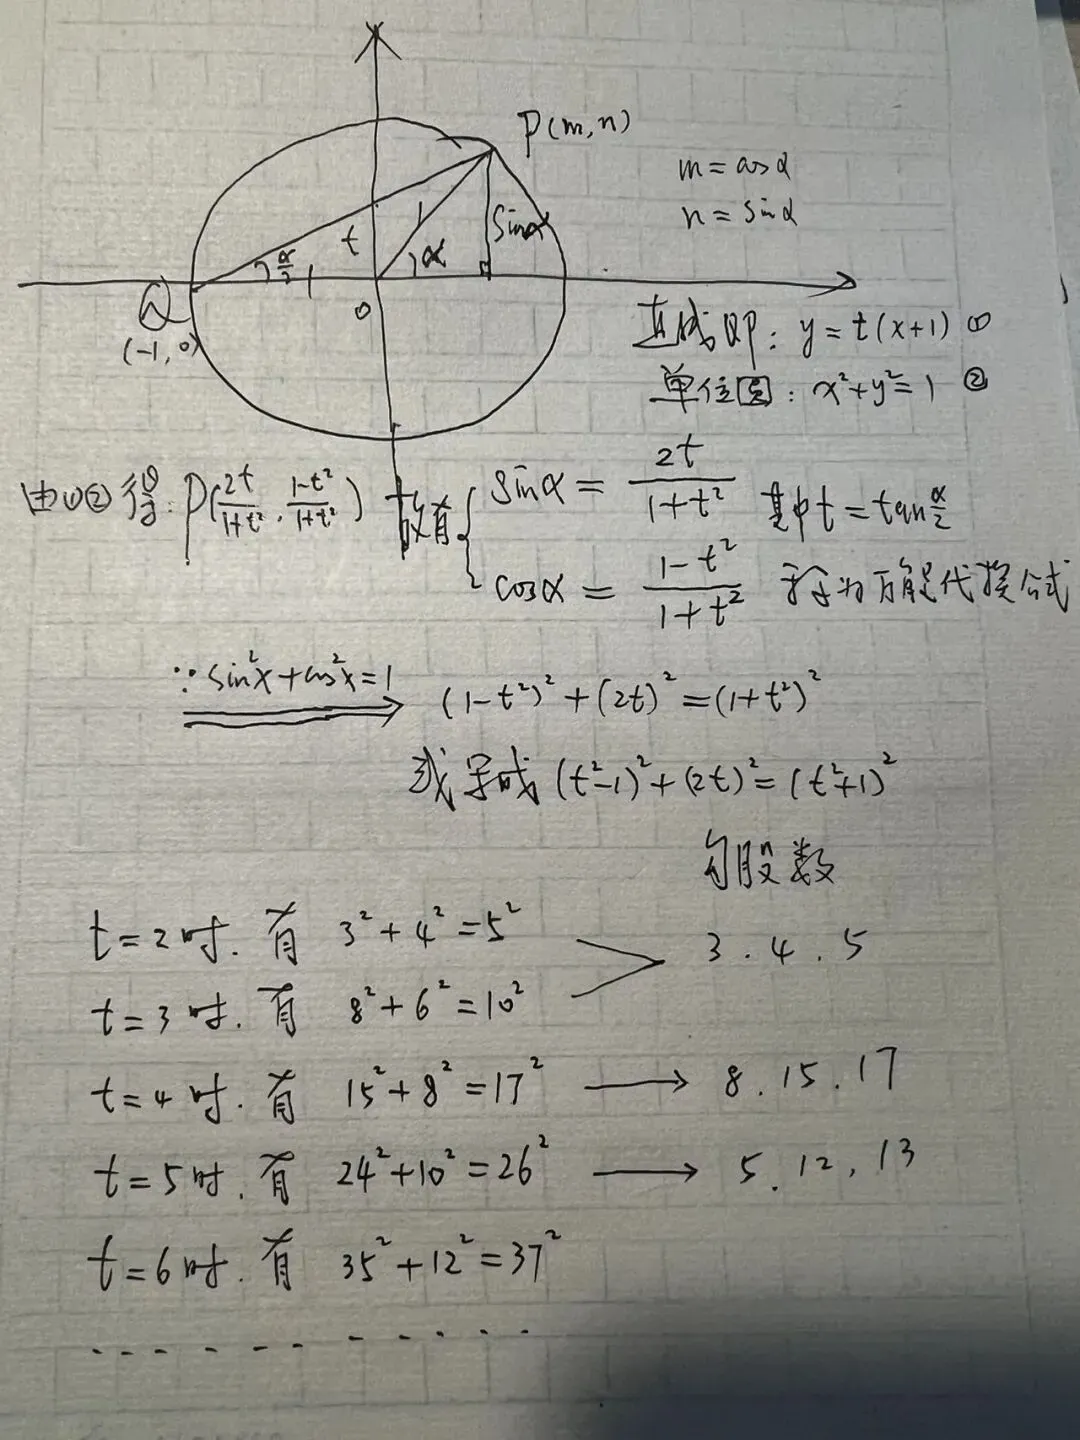 P(m,n)
m=cosα
n=sinα
1
sinα
t
α
α/2
1
Q
(-1,0)
0
直线QP: y=t(x+1) ①
单位圆: x²+y²=1 ②
由①②得: P(2t/(1+t²), (1-t²)/(1+t²)) 故有 { sinα = 2t/(1+t²) 其中t=tan α/2
cosα = (1-t²)/(1+t²) 称为万能代换公式
∵sin²x+cos²x=1 ⟹ (1-t²)²+(2t)²=(1+t²)²
或写成 (t²-1)²+(2t)²=(t²+1)²
勾股数
t=2时. 有 3²+4²=5²
3.4.5
t=3时. 有 8²+6²=10²
t=4时. 有 15²+8²=17² → 8.15.17
t=5时. 有 24²+10²=26² → 5.12.13
t=6时. 有 35²+12²=37²
............